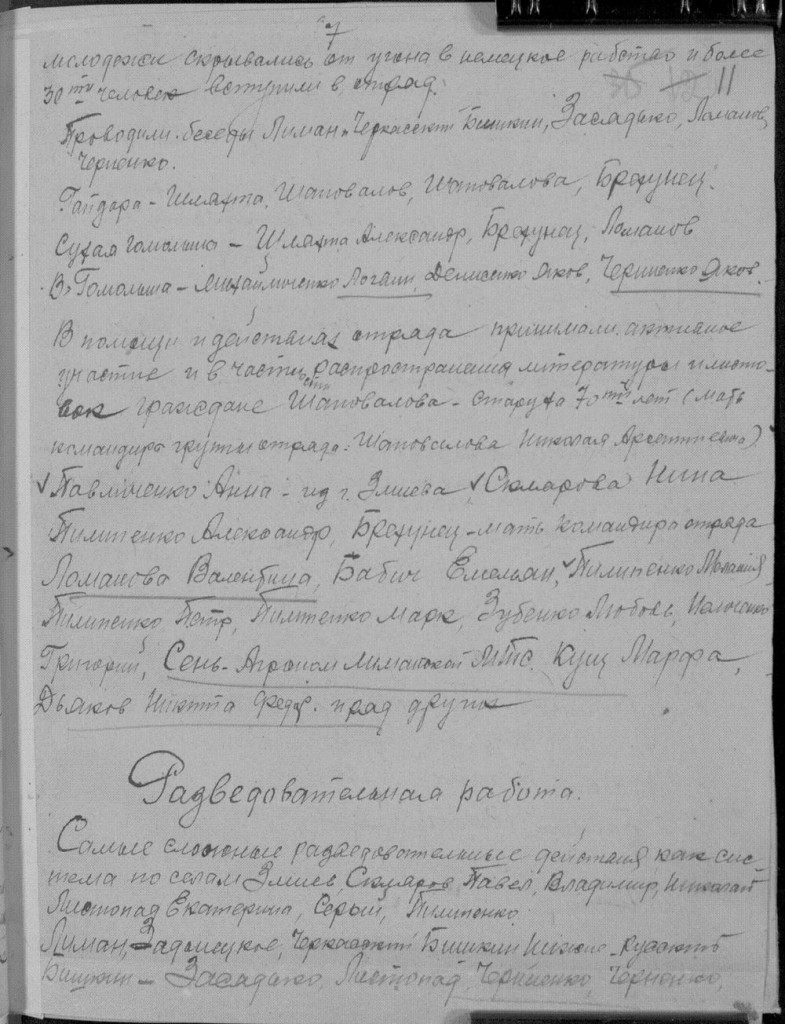 7
молодежи скрывались от угона в немецкое рабство и более
30ти человек вступили в отряд.
11
Проводили беседы Лиман, Черкасский Бишкин, Засядько, Ломанов,
Черненко.
Гайдара – Шляхта, Шаповалов, Шаповалова, Брехунец.
Сухая Гомольша – Шляхта Александр, Брехунец, Ломанов
В. Гомольша – Денисенко Яков, Черненко Яков.
В помощи и действиях отряда принимали активное
участие и в частности распространения литературы и листо-
вок граждане Шаповалова – старуха 70ти лет (мать
командира группы отряда Шаповалова Николая)
Павлюченко Анна – из г. Змиева, Склярова Нина
Пилипенко Александр, Брехунец – мать командира отряда
Ломанова Валентина, Бабич Емельян, Пилипенко
Пилипенко Петр, Пилипенко Марк, Зубенко Любовь,
Григорий, Сень – Агроном Лиманской МТС. Кущ Марфа,
Дьяков Никита Федор. и ряд других
Разведовательная работа.
Самые сложные разведовательные действия как сис
тема по селам Змиев, Скляров Павел, Владимир, Николай
Листопад Екатерина, Серый, Пилипенко.
Лиман, Задонецкое, Черкасский Бишкин Нижне-Русский
Бишкин – Засядько, Листопад, Черненко,